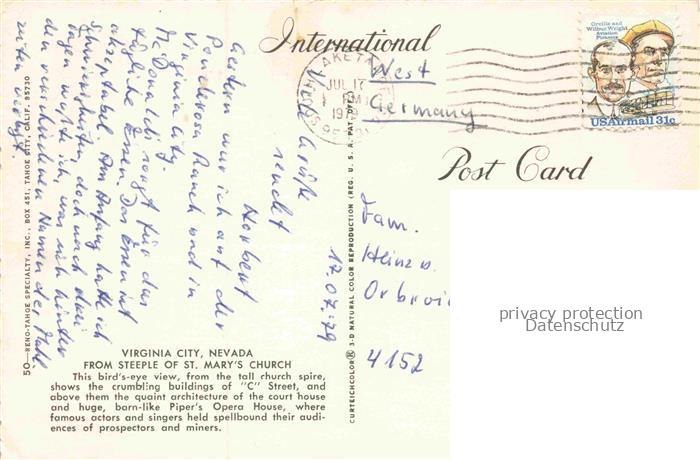 International
Post Card
Orville and
Wilbur Wright
Aviation
Pioneers
USAirmail 31c
JUL 17
West
Germany
Fam.
Heinz u.
4152
privacy protection
Datenschutz
Gestern war ich auf der
Ponderosa Ranch und in
Virginia City.
Mc Donalds sorgt für das
tägliche Essen. Das Essen ist
akzeptabel. Am Anfang hatte ich
Schwierigkeiten, doch nach drei
Tagen wußte ich, was sich hinter
den verschiedenen Namen der Mahl-
zeiten verbirgt.
Viele Grüße
sendet
Norbert
17.07.79
50—RENO-TAHOE SPECIALTY, INC., BOX 451, TAHOE CITY, CALIF. 95730
CURTEICHCOLOR® 3-D NATURAL COLOR REPRODUCTION (REG. U. S. A. PAT. OFF.)
VIRGINIA CITY, NEVADA
FROM STEEPLE OF ST. MARY'S CHURCH
This bird's-eye view, from the tall church spire,
shows the crumbling buildings of "C" Street, and
above them the quaint architecture of the court house
and huge, barn-like Piper's Opera House, where
famous actors and singers held spellbound their audi-
ences of prospectors and miners.